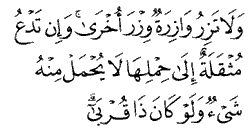 وَلَا تَزِرُ وَازِرَةٌ وِزْرَ أُخْرَىٰ ۚ وَإِن تَدْعُ
مُثْقَلَةٌ إِلَىٰ حِمْلِهَا لَا يُحْمَلْ مِنْهُ
شَيْءٌ وَلَوْ كَانَ ذَا قُرْبَىٰ ۗ